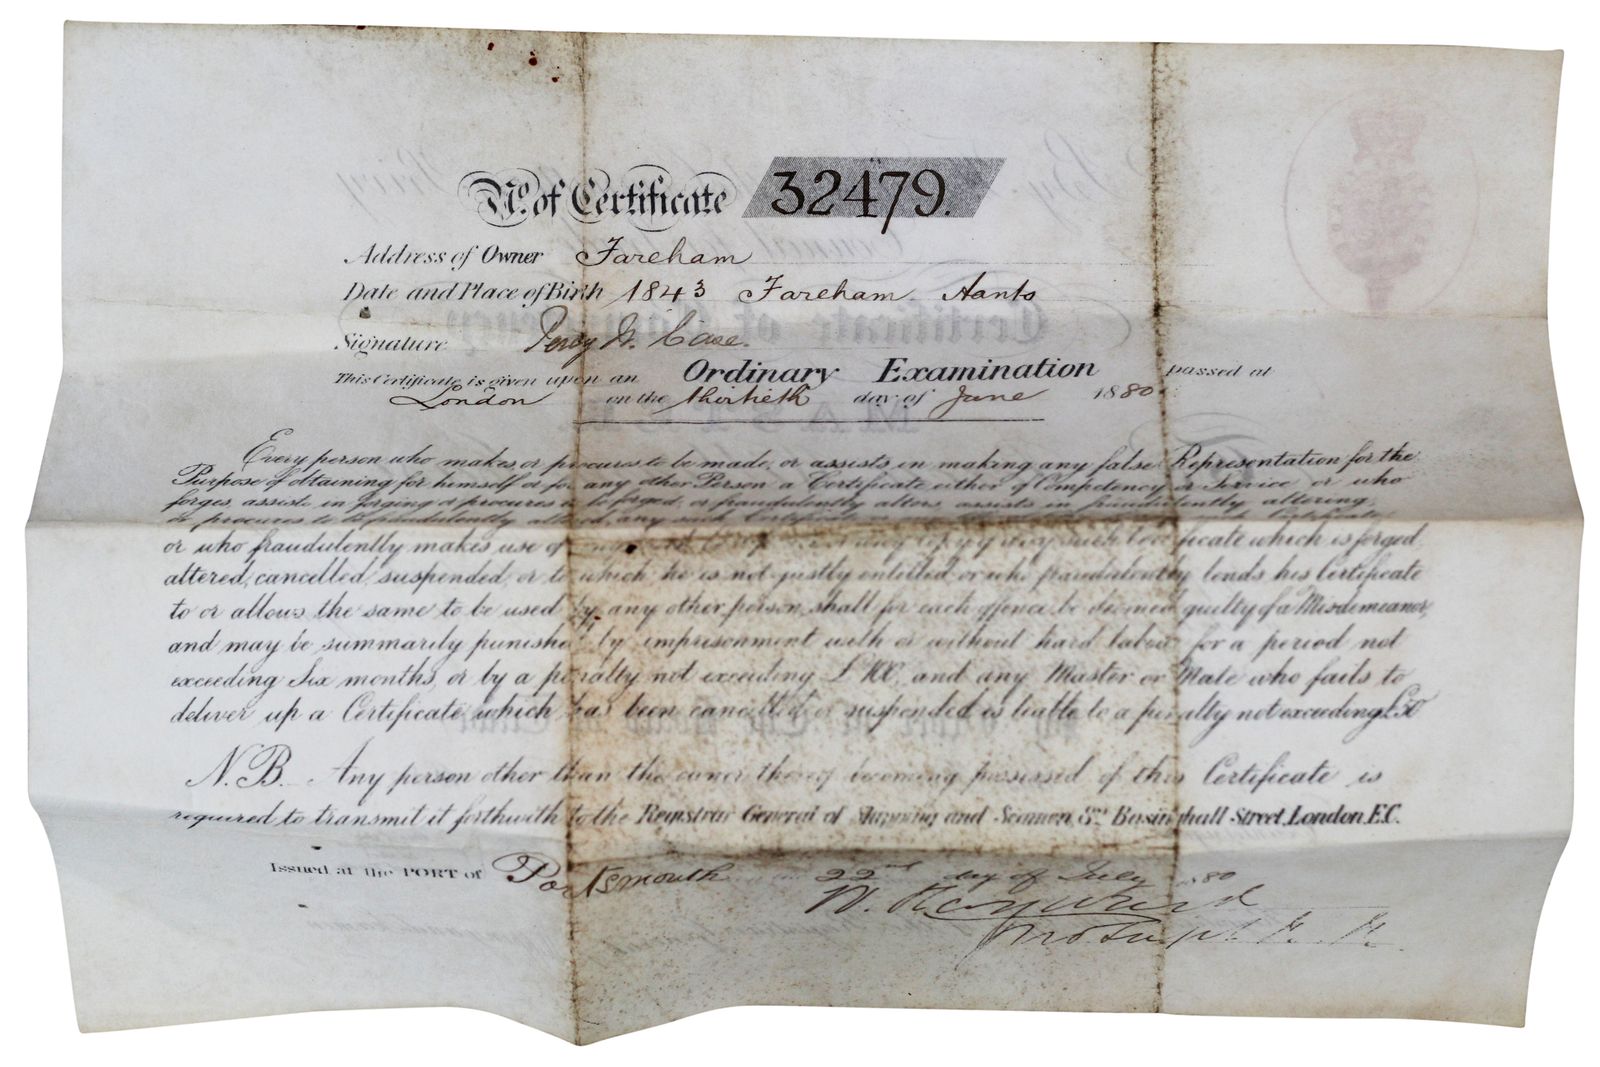 No. of Certificate 32479.
Address of Owner Fareham
Date and Place of Birth 1843 Fareham Hants
Signature Percy W. Case.
This Certificate is given upon an Ordinary Examination passed at
London on the thirtieth day of June 1880.
Every person who makes, or procures to be made, or assists in making any false Representation for the
Purpose of obtaining for himself or for any other Person a Certificate either of Competency or Service or who
forges, assists in forging or procures to be forged, or fraudulently alters, assists in fraudulently altering,
or procures to be fraudulently altered, any such Certificate
or who fraudulently makes use of any such Certificate which is forged,
altered, cancelled, suspended, or to which he is not justly entitled or who fraudulently lends his Certificate
to or allows the same to be used by any other person, shall for each offence be deemed guilty of a Misdemeanor,
and may be summarily punished by imprisonment with or without hard labour for a period not
exceeding Six months, or by a penalty not exceeding £100, and any Master or Mate who fails to
deliver up a Certificate which has been cancelled or suspended is liable to a penalty not exceeding £50
N.B. Any person other than the owner thereof becoming possessed of this Certificate is
required to transmit it forthwith to the Registrar General of Shipping and Seamen, Basinghall Street, London, E.C.
Issued at the PORT of Portsmouth 22nd day of July 1880